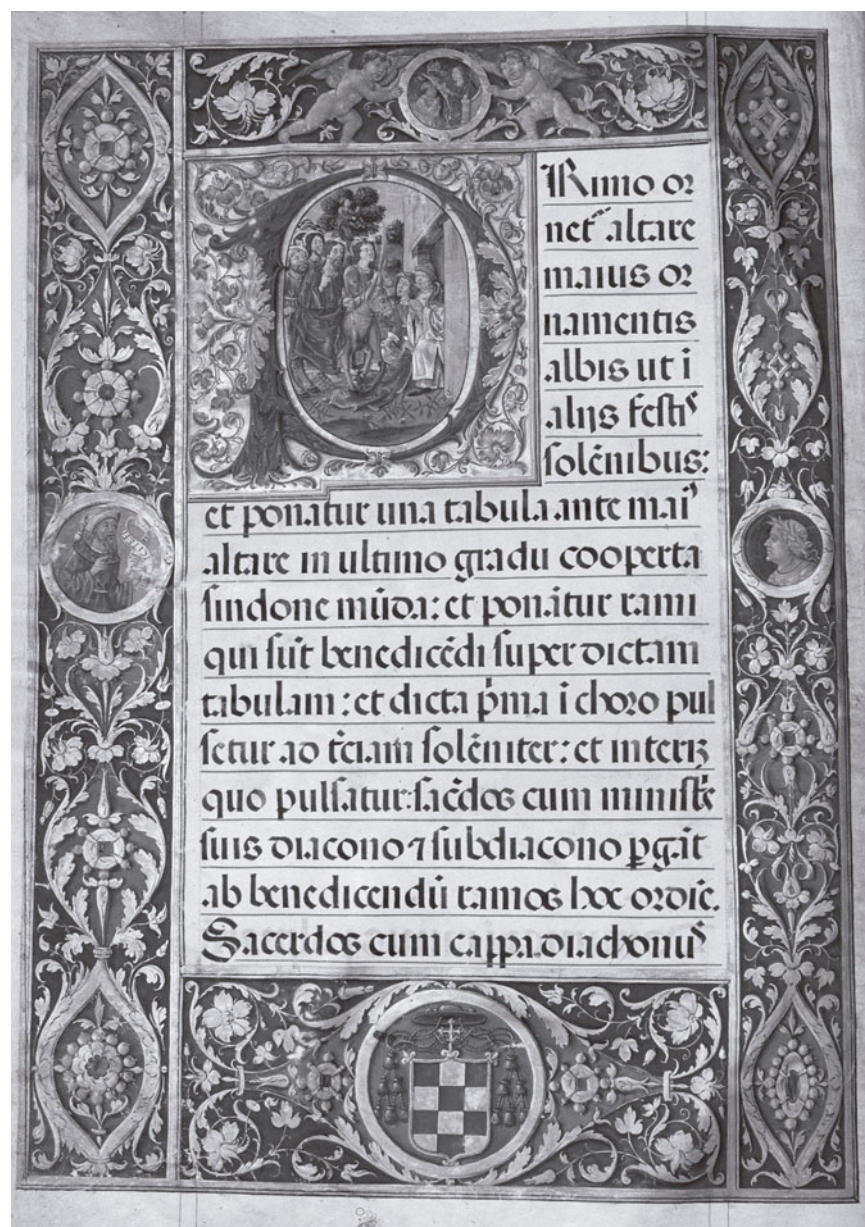 PRimo or
net² altare
maius or
namentis
albis ut ĩ
alijs festꝭ
solẽnibus:
et ponatur una tabula ante maiꝰ
altare in ultimo gradu cooperta
sindone mũda: et ponãtur rami
qui sũt benedicẽdi super dictam
tabulam: et dicta p̃ma ĩ choro pul
setur ad t̃ciam solẽniter: et interiꝫ
quo pulsatur: sac̃dos cum ministꝭ
suis diacono ⁊ subdiacono ꝑgãt
ab benedicendũ ramos hoc ordĩe.
Sacerdos cum cappa diachonuꝰ